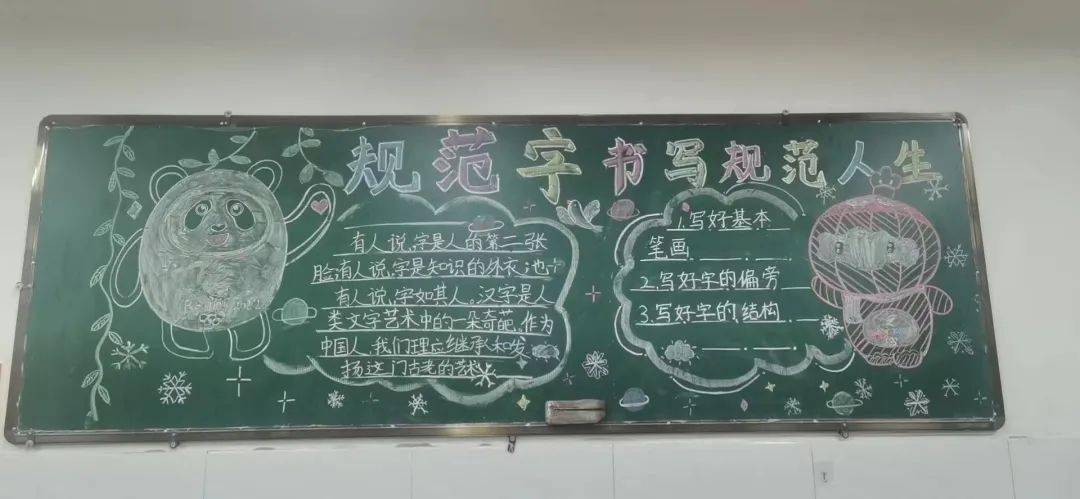 规范字 书写规范人生
有人说,字是人的第二张
脸;有人说,字是知识的外衣;也
有人说,字如其人。汉字是人
类文字艺术中的一朵奇葩,作为
中国人,我们理应继承和发
扬这门古老的艺术
1.写好基本
笔画
2.写好字的偏旁
3.写好字的结构